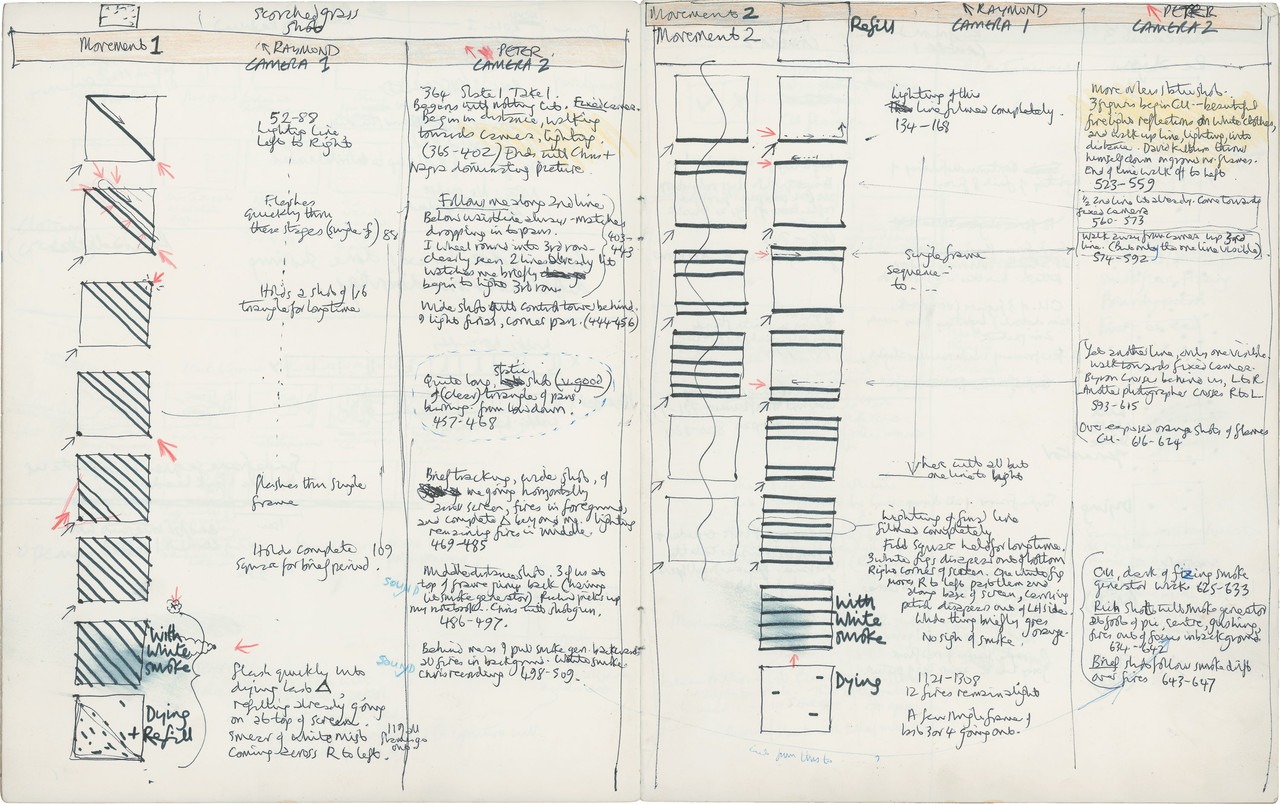 Scorched grass
shot
Movement 1
RAYMOND
CAMERA 1
PETER
CAMERA 2
52-88
Lighting line
Left to Right
Flashes
quickly thru
these stages (single f)
88
Holds a shot of lit
triangle for long time
flashes thru single
frame
Holds complete 109
square for brief period.
With
White
smoke
Dying
+ Refill
Flash quickly into
dying last Δ
refilling already going
on at top of screen.
Smear of white mist
Coming across R to left.
364 Slate 1, Take 1.
Begins with nothing lit. Fixed camera.
Begin in distance, walking
towards camera, lighting.
(365-402) Ends with Chris +
Nagra dominating picture.
Follow me along 2nd line
dropping in to pans.
I wheel round into 3rd row-
clearly seen 2 lines already lit
watches me briefly
begin to light 3rd row.
403-
443
Wide shot with control tower behind.
I light final, corner pan. (444-456)
static
Quite long, shot (v. good)
of (clear) triangle of pans,
burning from low down.
457-468
Brief tracking, wide shot, of
me going horizontally
across screen, fires in foreground,
and complete Δ beyond me, lighting
remaining fires in middle.
469-485
SOUND
Middle distance shot. 3 of us at
top of frame running back (having
lit smoke generator) Richard picks up
my notebook. Chris with shotgun.
486-497.
SOUND
Behind me as I pull smoke gen. backwards
all fires in background. White smoke
Chris recording 498-509.
Movement 2
Movement 2
Refill
RAYMOND
CAMERA 1
PETER
CAMERA 2
Lighting of this
line filmed completely.
134-168
single frame
sequence-
to- - - -
here with all but
one line to light
Lighting of final line
filmed completely
Full square held for long time.
3 white figs disappear out of bottom
Right corner of screen. One white fig
moves R to left past them and
along base of screen, carrying
petrol disappears out of LH side
White thing briefly goes
orange.
No sign of smoke.
With
White
smoke
Dying
1121-1308
12 fires remain alight
A few single frames of
last 3 or 4 going out.
More or less static shot.
3 figures begin CU - beautiful
firelight reflections on white clothes,
and walk up line, lighting, into
distance. David Kilburn throws
himself down on ground nr. flames.
End of line walk off to left.
523-559
½ 2nd line lit already. Come towards
fixed camera
560-573
Walk away from camera up 3rd
line. (But only the one line visible)
574-592
Yet another line, only one visible.
walk towards fixed camera
Byron crosses behind us, L to R
Another photographer crosses R to L
593-615
Over exposed orange shots of flames
CU. 616-624
CU, dark of fizzing smoke
generator wick 625-633
Rich shot with smoke generator
at foot of pic, centre, gushing,
fires out of focus in background
634-642
Brief shot follow smoke drift
over fires 643-647